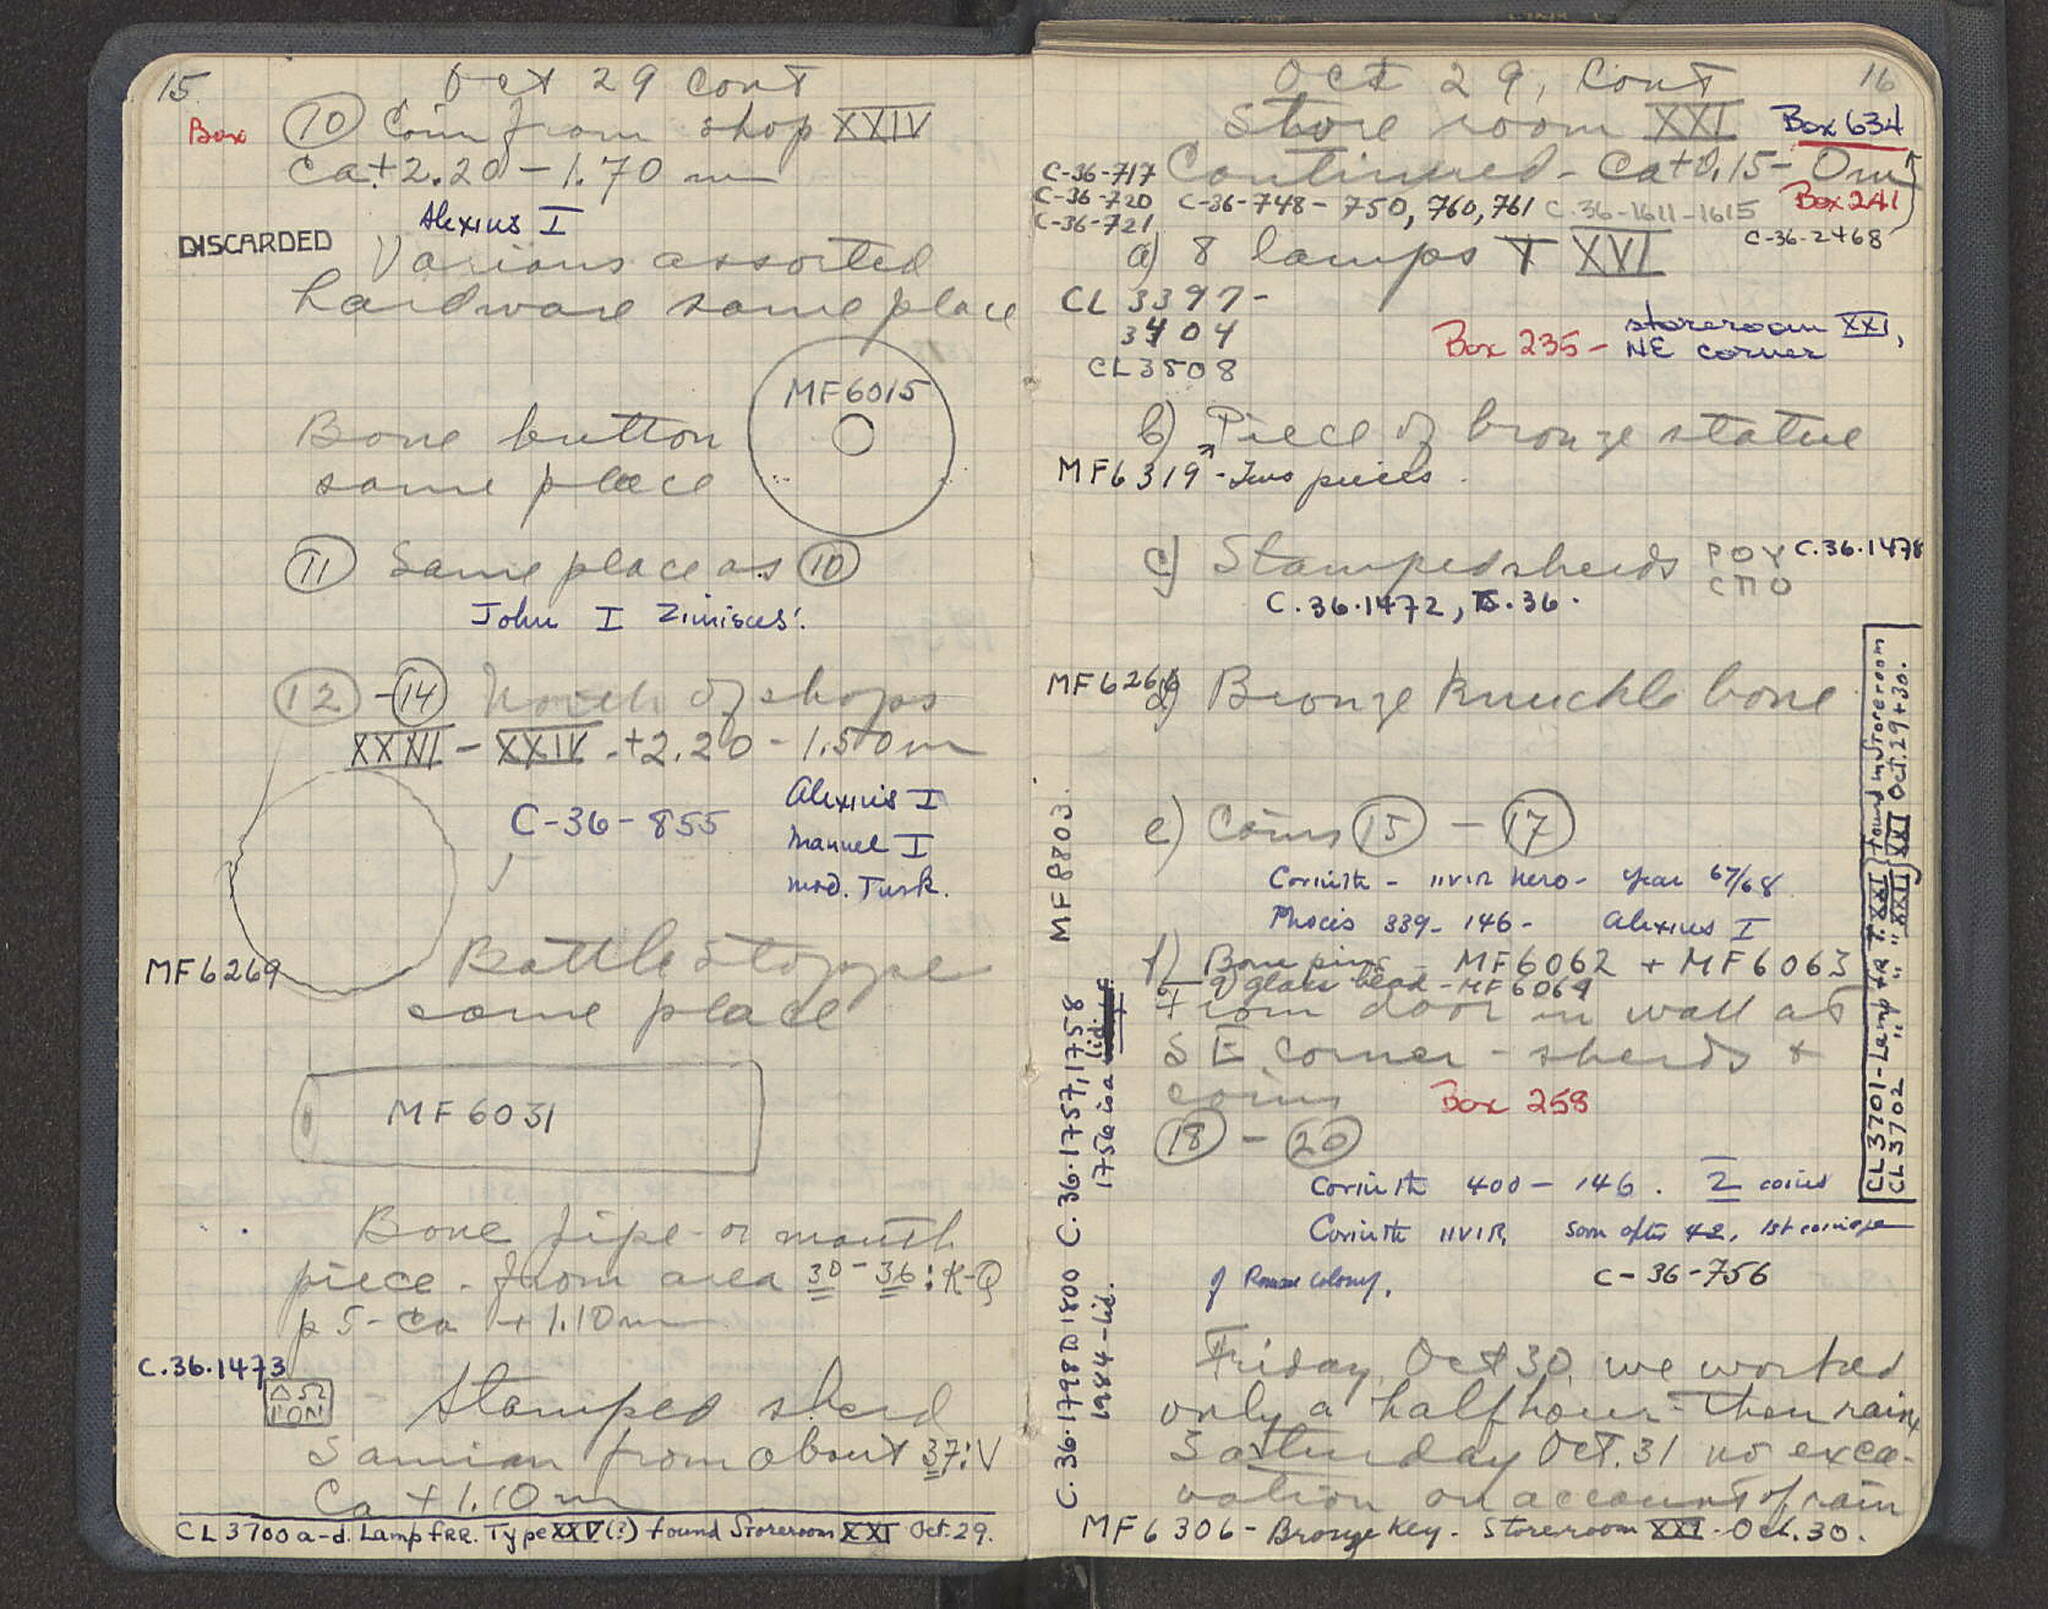 15 Oct 29 Cont
Box ⑩ Coin from shop XXIV
Ca + 2.20 - 1.70 m
Alexius I
DISCARDED Various assorted
hardware same place
MF6015
Bone button
same place
⑪ Same place as ⑩
John I Zimisces.
⑫ - ⑭ North of shops
XXIII - XXIV + 2.20 - 1.50 m
Alexius I
C-36-855
Manuel I
mod. Turk.
MF6269
Bottle Stopper
same place
MF6031
Bone pipe or mouth
piece - from area 30 - 36 : K-Q
p 5 - Ca + 1.10 m
C.36.1473
ΔΩ
ΡΟΝ
Stamped sherd
Samian from about 37:V
Ca + 1.10 m
CL 3700 a-d. Lamp frr. Type XXV(?) found Storeroom XXI Oct. 29.
Oct 29, Cont 16
Store room XXI Box 634
C-36-717 Continued - Ca + 0.15 - 0 m
C-36-720 C-36-748 - 750, 760, 761 C.36-1611-1615 Box 241
C-36-721 C-36-2468
a) 8 lamps T XVI
CL 3397 -
3404
CL 3508
Box 235 - storeroom XXI,
NE corner
b) Piece of bronze statue
MF6319 - Two pieces.
c) Stamped sherds ΡΟΥ C.36.1478
CΠΟ
C.36.1472, .36.
MF6266 d) Bronze Knuckle bone
e) Coins ⑮ - ⑰
Corinth - IIVIR Nero - year 67/68
Phocis 339-146 - Alexius I
f) Bone pins - MF6062 + MF6063
g) glass bead - MF6064
From door in wall at
SE corner - sherds +
coins Box 258
⑱ - ⑳
Corinth 400 - 146. 2 coins
Corinth IIVIR, soon after 42, 1st coinage
of Roman Colony. C-36-756
Friday Oct 30 we worked
only a half hour - Then rain
Saturday Oct. 31 no exca-
vation on account of rain
MF6306 - Bronze Key - Storeroom XXI - Oct. 30.
MF8803.
C.36.1798 1800 C.36.1757, 1758
1984 - lid. 1756 is a lid.
CL 3701 - Lamp fr. T. XXI } found in Storeroom
CL 3702 " " " XXII } XXI Oct. 29 + 30.